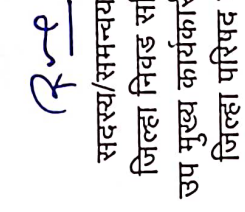 सदस्य/समन्वय
जिल्हा निवड स
उप मुख्य कार्यका
जिल्हा परिषद